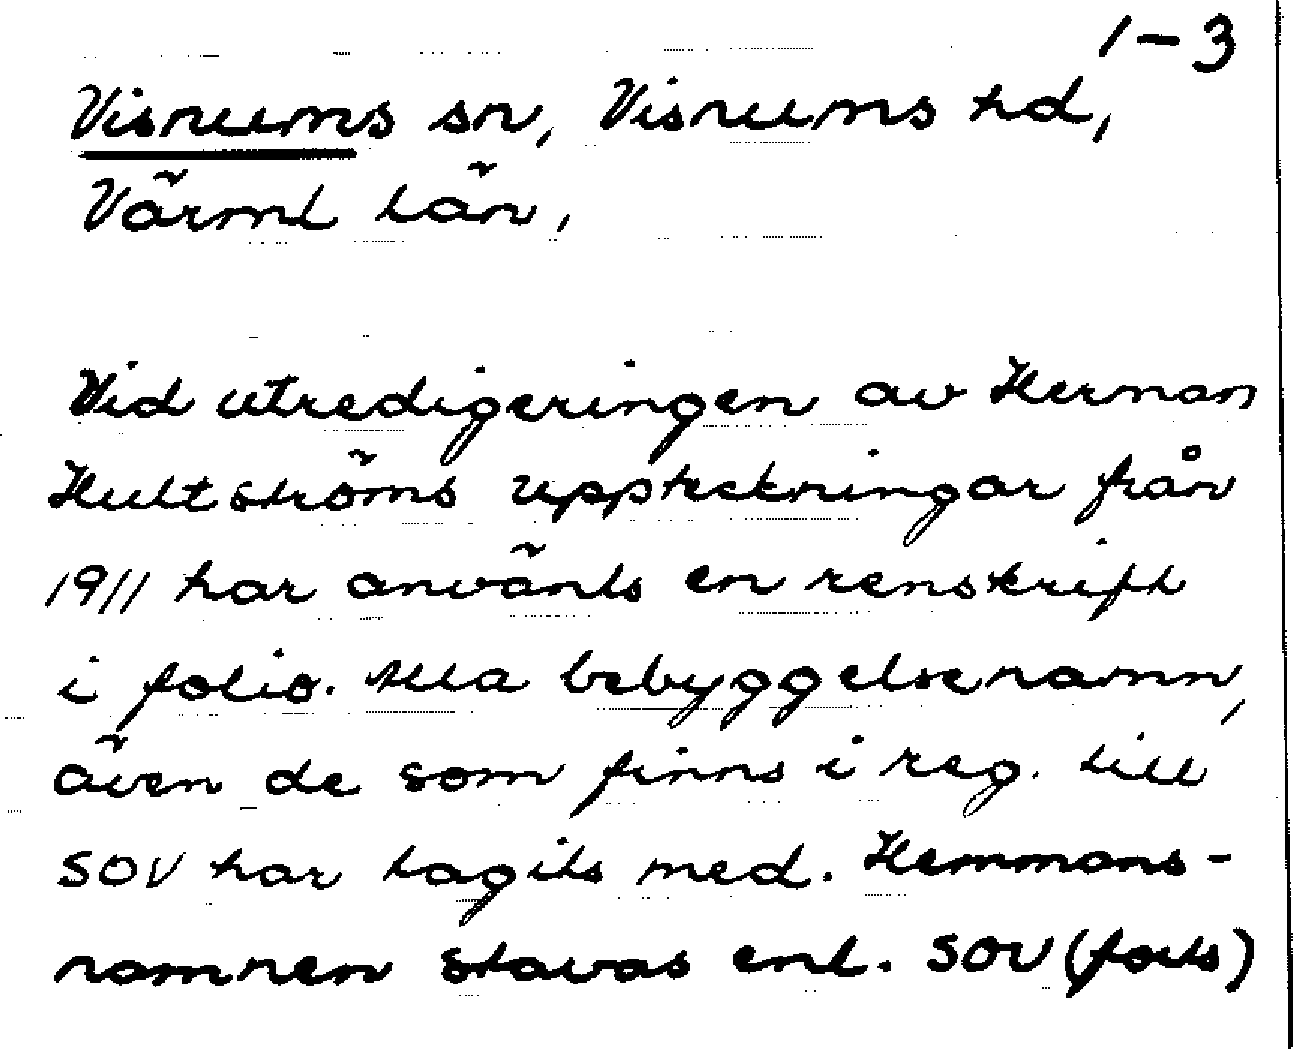 1-3
Visnums sn, Visnums hd,
Värml län,
Vid utredigeringen av Herman
Hultströms uppteckningar från
1911 har använts en renskrift
i folio. Alla bebyggelsenamn,
även de som finns i reg. till
SOV har tagits med. Hemmans-
namnen stavas enl. SOV (forts)